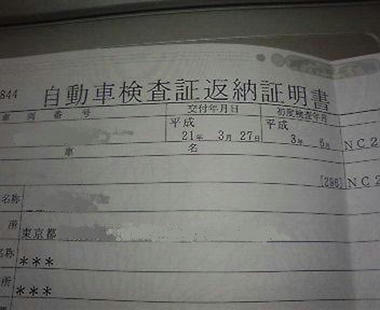 844 自動車検査証返納証明書
車両番号 交付年月日 初度検査年月
平成 平成
21年 3月 27日 3年 6月 NC2
車名
[298] NC2
名称
所 東京都
名称 ***
所 ***